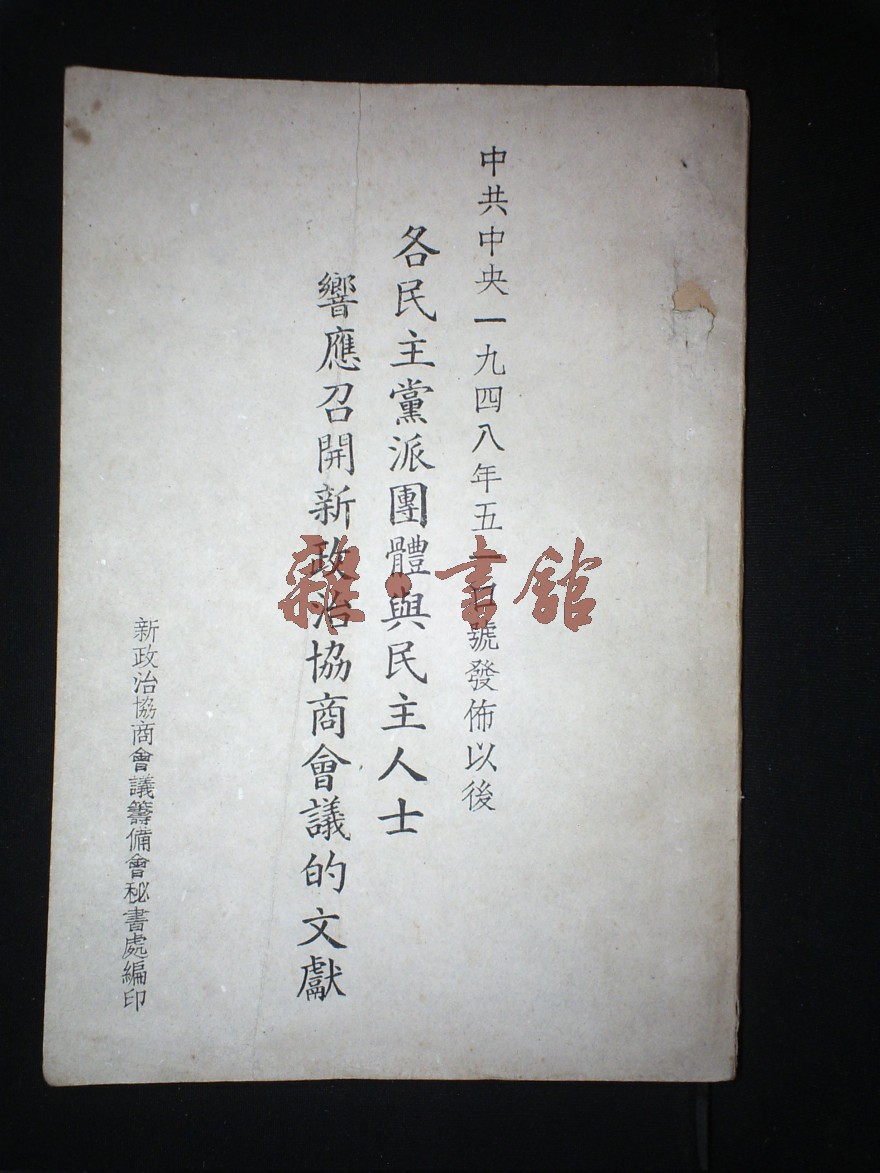 中共中央一九四八年五一口號發佈以後
各民主黨派團體與民主人士
響應召開新政治協商會議的文獻
新政治協商會議籌備會秘書處編印
雜·書舘